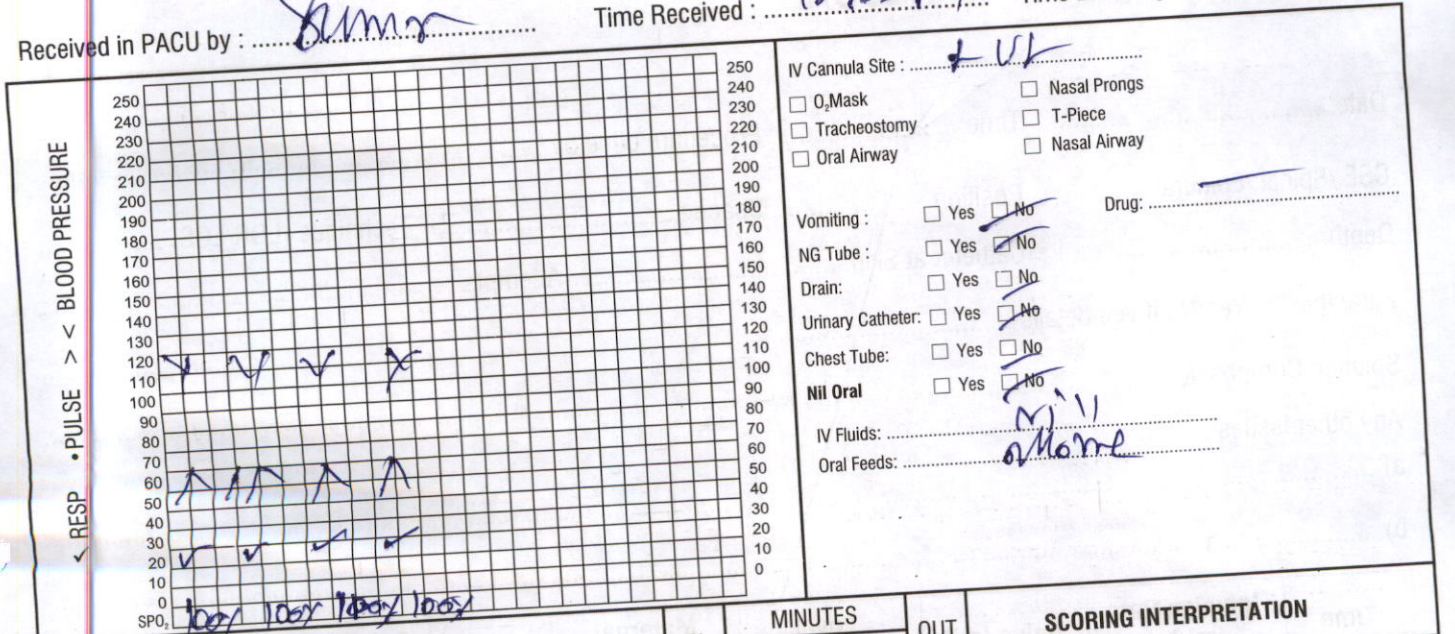 Received in PACU by :
Time Received :
RESP • PULSE > < BLOOD PRESSURE
250
240
230
220
210
200
190
180
170
160
150
140
130
120
110
100
90
80
70
60
50
40
30
20
10
0
SPO₂ 100% 100% 100% 100%
250
240
230
220
210
200
190
180
170
160
150
140
130
120
110
100
90
80
70
60
50
40
30
20
10
0
IV Cannula Site :
☐ O₂Mask ☐ Nasal Prongs
☐ Tracheostomy ☐ T-Piece
☐ Oral Airway ☐ Nasal Airway
Vomiting : ☐ Yes ☐ No Drug:
NG Tube : ☐ Yes ☐ No
Drain: ☐ Yes ☐ No
Urinary Catheter: ☐ Yes ☐ No
Chest Tube: ☐ Yes ☐ No
Nil Oral ☐ Yes ☐ No
IV Fluids: Nill
Oral Feeds:
MINUTES
OUT
SCORING INTERPRETATION